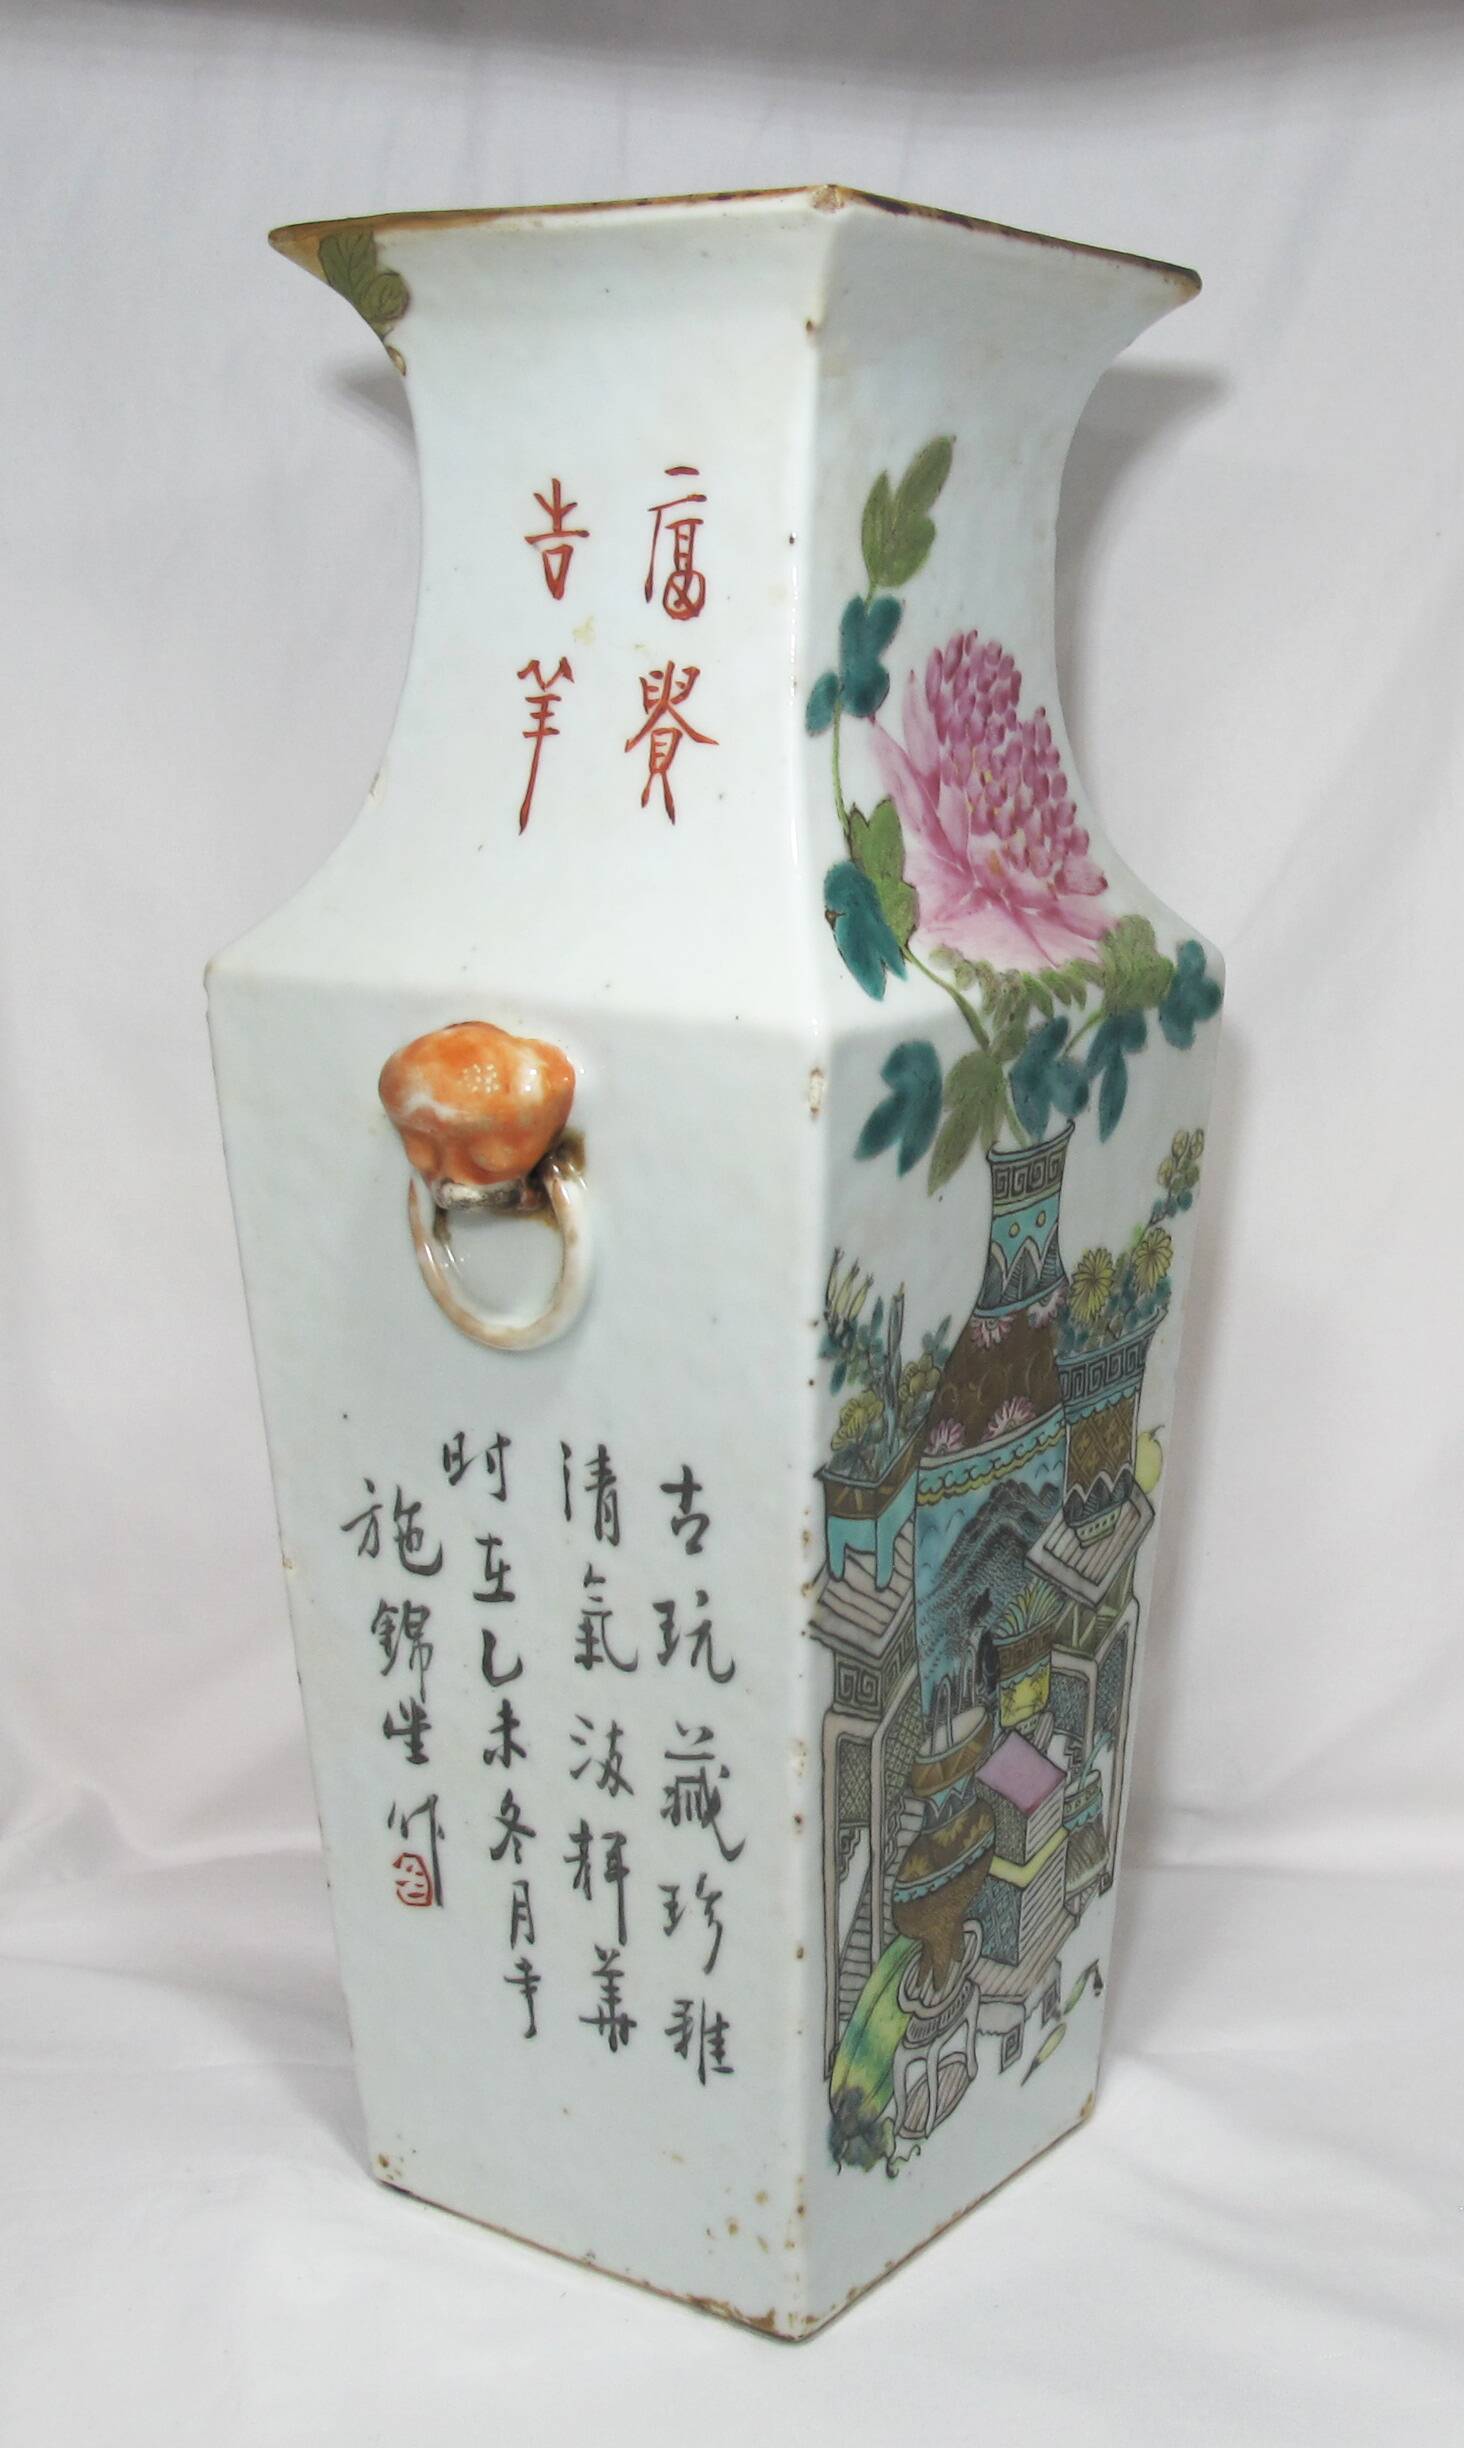 富貴
吉羊
古玩藏珍雅
清氣發輝華
时在乙未冬月
施錦堂作